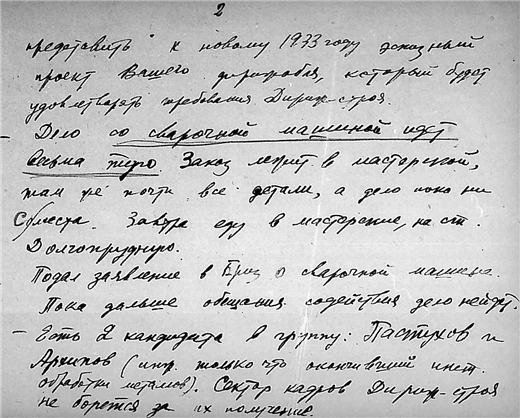 2
представить к новому 1933 году эскизный
проект Вашего дирижабля, который будет
удовлетворять требования Дириж-строя.
– Дело со сварочной машиной идет
весьма туго. Заказ лежит в мастерской,
там же почти все детали, а дело пока ни
с места. Завтра еду в мастерские, на ст.
Долгопрудную.
Подал заявление в Бриз о сварочной машине.
Пока дальше обещания содействия дело нейдет.
– Есть 2 кандидата в группу: Пастухов и
Архипов (инж. только что окончивший инст.
обработки металов). Сектор кадров Дириж-строя
не борется за их получение.